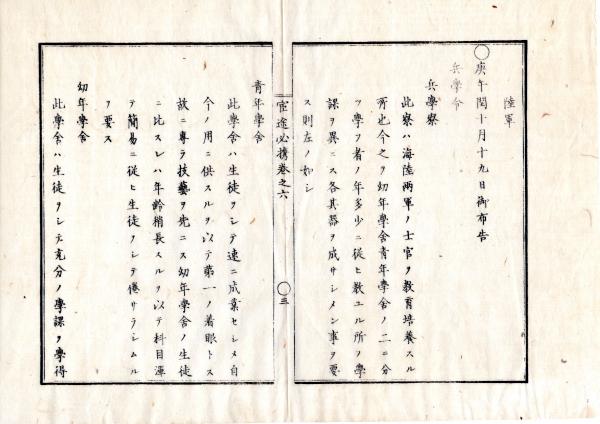 陸軍
○庚午閏十月十九日御布告
兵學令
兵學寮
此寮ハ海陸兩軍ノ士官ヲ教育培養スル
所也今之ヲ幼年學舍青年學舍ノ二ニ分
ツ學ヲ者ノ年多少ニ從ヒ教ユル所ノ學
課ヲ異ニス各其器ヲ成サシメン事ヲ要
ス則左ノ如シ
宦途必携卷之六
○三
青年學舍
此學舍ハ生徒ヲシテ速ニ成業セシメ自
今ノ用ニ供スルヲ以テ第一ノ着眼トス
故ニ專ラ技藝ヲ先ニス幼年學舍ノ生徒
ニ比スレハ年齡稍長スルヲ以テ科目運
テ簡易ニ從ヒ生徒ヲシテ倦サラシムル
ヲ要ス
幼年學舍
此學舍ハ生徒ヲシテ充分ノ學課ヲ學得